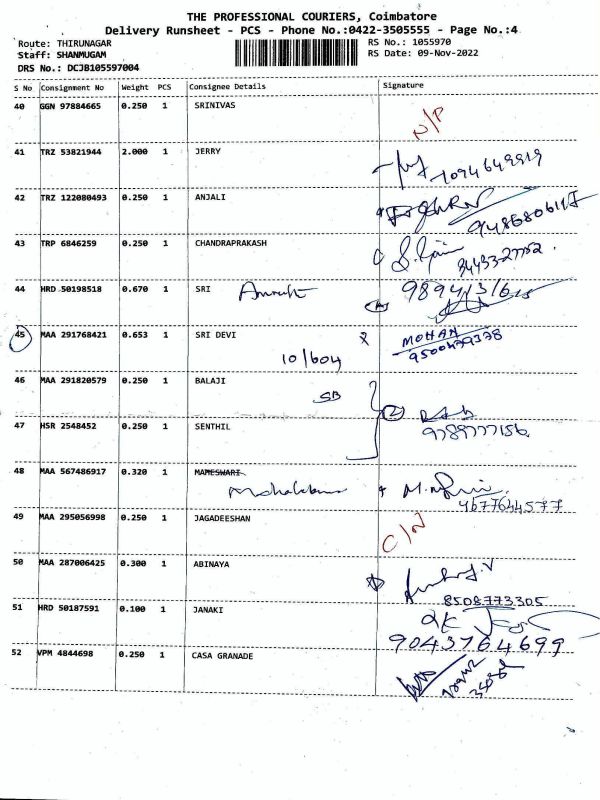 THE PROFESSIONAL COURIERS, Coimbatore
Delivery Runsheet - PCS - Phone No.:0422-3505555 - Page No.:4
Route: THIRUNAGAR
Staff: SHANMUGAM
DRS No.: DCJB105597004
RS No.: 1055970
RS Date: 09-Nov-2022
S No Consignment No Weight PCS Consignee Details Signature
40 GGN 97884665 0.250 1 SRINIVAS N/P
41 TRZ 53821944 2.000 1 JERRY
42 TRZ 122080493 0.250 1 ANJALI
43 TRP 6846259 0.250 1 CHANDRAPRAKASH
44 HRD 50198518 0.670 1 SRI
45 MAA 291768421 0.653 1 SRI DEVI MOHAN
10/604 9500479378
46 MAA 291820579 0.250 1 BALAJI
SB
47 HSR 2548452 0.250 1 SENTHIL
9789777156
48 MAA 567486917 0.320 1 MAMESWARI
49 MAA 295056998 0.250 1 JAGADEESHAN C/N
50 MAA 287006425 0.300 1 ABINAYA
8508773305
51 HRD 50187591 0.100 1 JANAKI
9043764699
52 VPM 4844698 0.250 1 CASA GRANADE